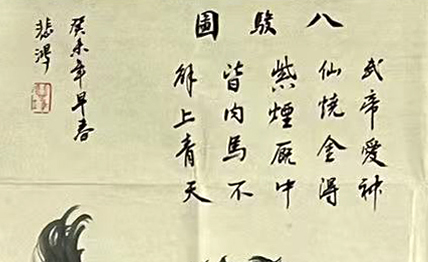 八駿圖
武帝愛神
仙燒金得
紫煙厩中
皆肉馬不
解上青天
癸未年早春
悲鴻